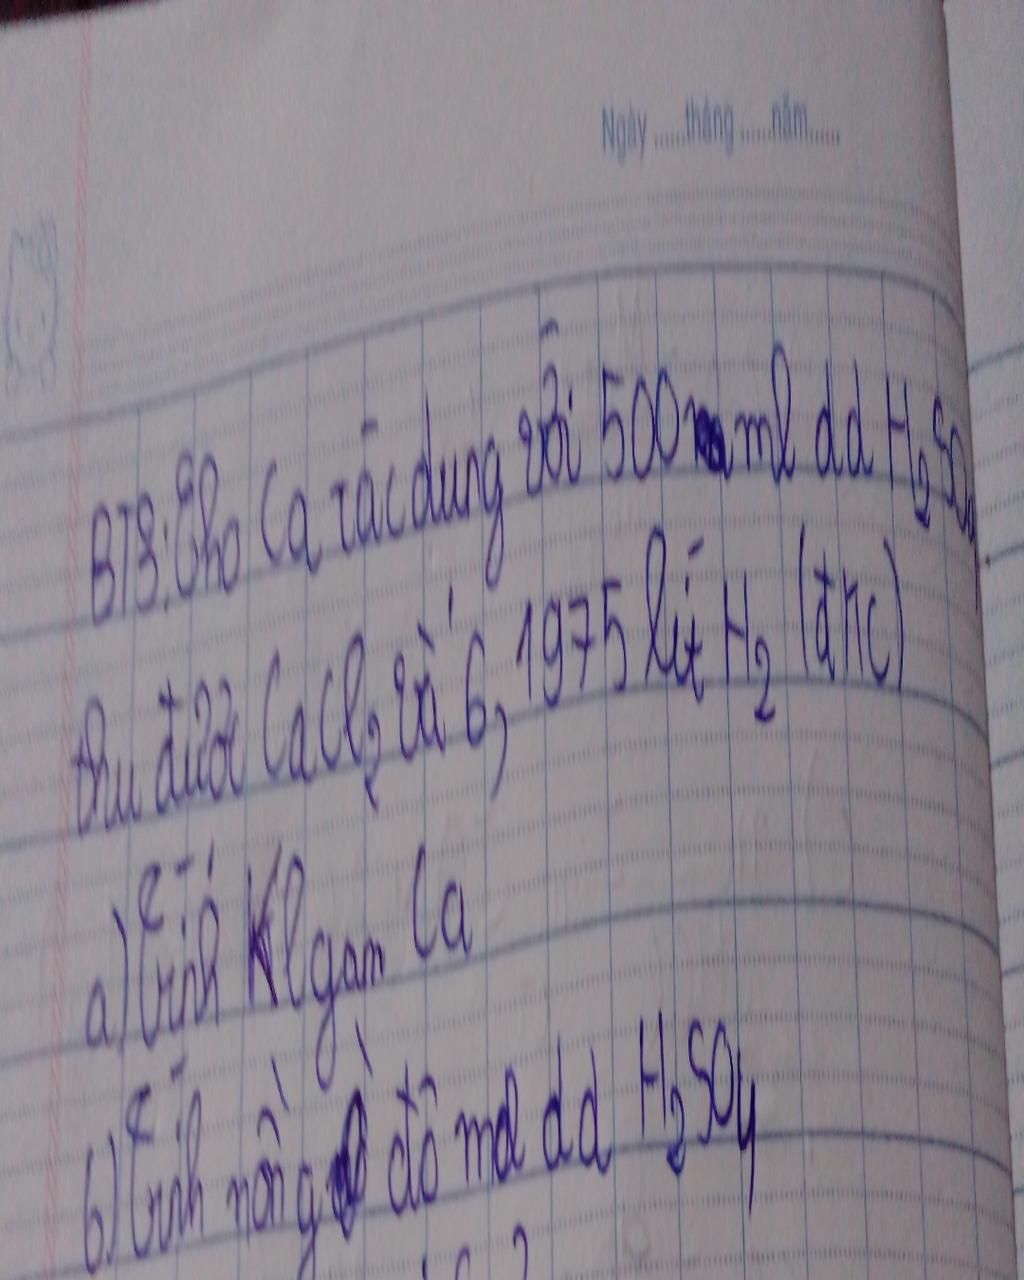 Ngày ......tháng ......năm......
BT3: Cho Ca tác dụng với 500 ml dd H₂SO₄
thu được CaCl₂ và 6,1975 lít H₂ (đkc)
a) Tính Kl gam Ca
b) Tính nồng độ mol dd H₂SO₄